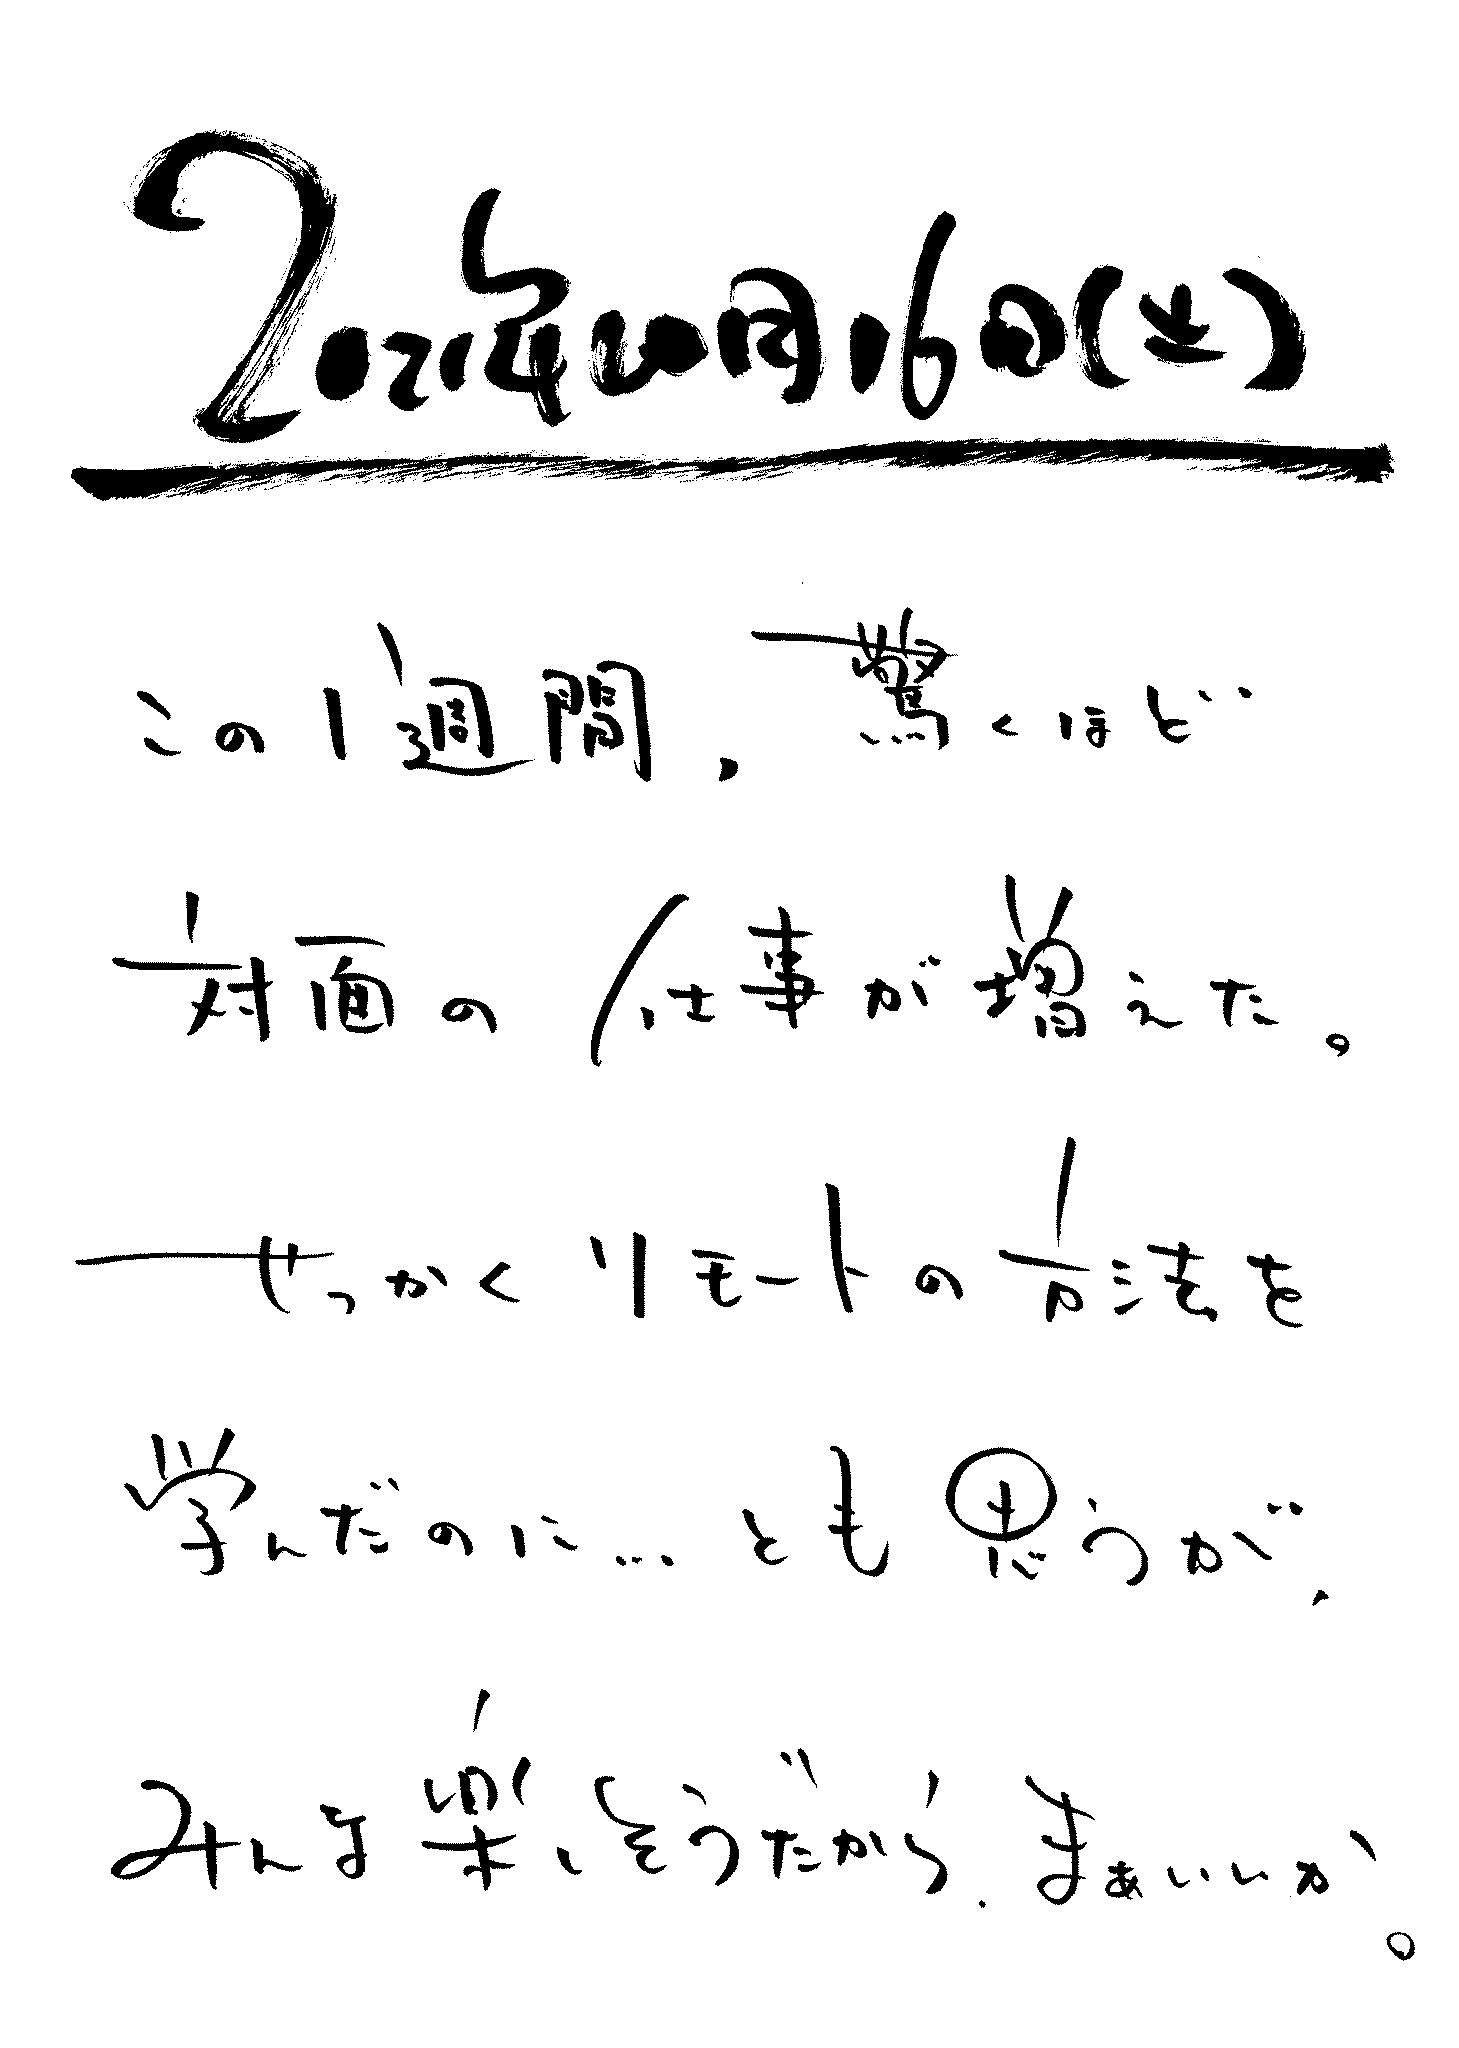 2021年10月16日(土)
この1週間、驚くほど
対面の仕事が増えた。
せっかくリモートの方法を
学んだのに…とも思うが、
みんな楽しそうだから、まぁいいか。